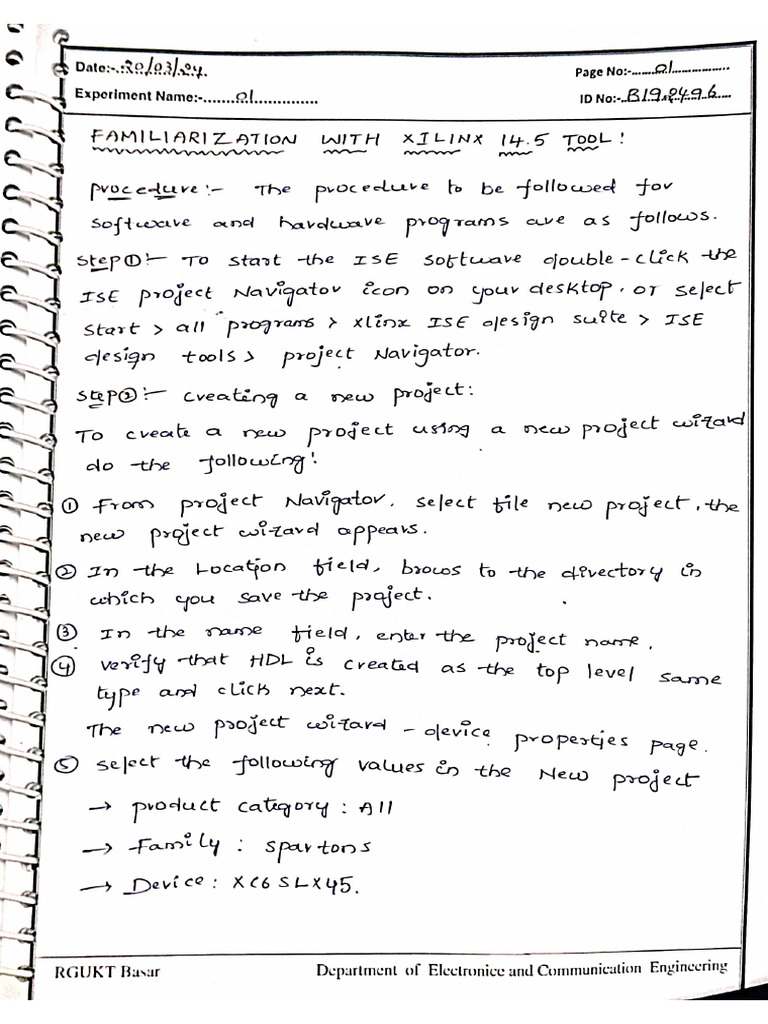 Date:-..20/03/24.
Page No:-......01...............
Experiment Name:-.......01..............
ID No:-..B192496....
FAMILIARIZATION WITH XILINX 14.5 TOOL :
procedure :- The procedure to be followed for
software and hardware programs are as follows.
step① :- To start the ISE software double-click the
ISE project Navigator icon on your desktop. or select
start > all programs > xlinx ISE design suite > ISE
design tools > project Navigator.
step② :- creating a new project :
To create a new project using a new project wizard
do the following :
① From project Navigator, select file new project, the
new project wizard appears.
② In the Location field, brows to the directory in
which you save the project.
③ In the name field, enter the project name.
④ verify that HDL is created as the top level same
type and click next.
The new project wizard - device properties page.
⑤ select the following values in the New project
→ product category : All
→ Family : spartons
→ Device : XC6SLX45.
RGUKT Basar
Department of Electronice and Communication Engineering